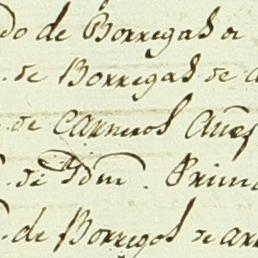 do de Borregas a
de Borregas de a
de Carneros Añes
de Ydm. Prima
de Borregos de ar